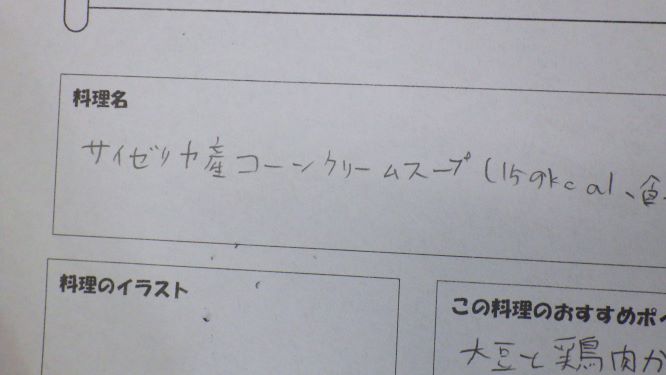 料理名
サイゼリヤ産コーンクリームスープ(159kcal、食
料理のイラスト
この料理のおすすめポイ
大豆と鶏肉か